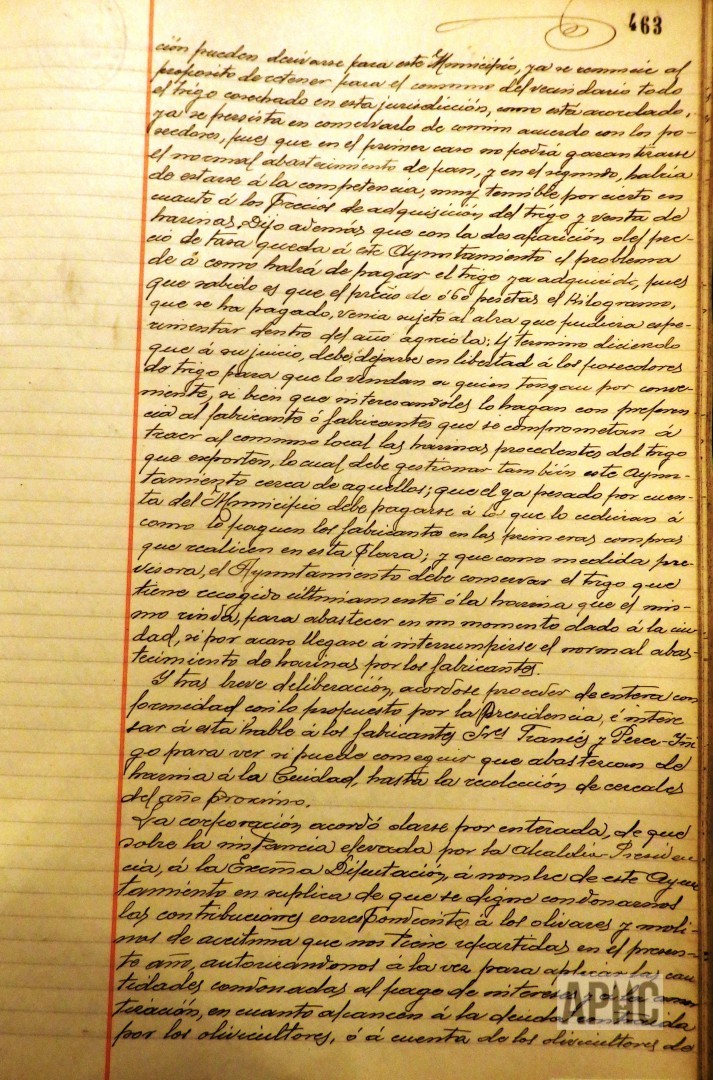 463
ción pueden derivarse para este Municipio, ya se renuncie al
proposito de retener para el consumo del vecindario todo
el trigo cosechado en esta jurisdicción, como está acordado,
ya se persista en conservarlo de comun acuerdo con los po-
seedores, pues que en el primer caso no podrá garantizarse
el normal abastecimiento de pan, y en el segundo, habria
de estarse á la competencia, muy temible por cierto en
cuanto á los Precios de adquisición del trigo y venta de
harinas. Dijo además que con la desaparición del pre-
cio de tasa queda á este Ayuntamiento el problema
de á como habrá de pagar el trigo ya adquirido, pues
que sabido es que el précio de 0'60 pesetas el Kilogramo,
que se ha pagado, venia sujeto al alza que pudiera espe-
rimentar dentro del año agricola: Y termino diciendo
que á su juicio, debe dejarse en libertad á los poseedores
do trigo para que lo vendan a quien tengan por conve-
niente, si bien que interesandoles lo hagan con preferen-
cia al fabricante ó fabricantes que se comprometan á
traer al consumo local las harinas procedentes del trigo
que exporten, lo cual debe gestionar tambien este Ayun-
tamiento cerca de aquellos; que el ya pesado por cuen-
ta del Municipio debe pagarse á lo que lo á
como lo paguen los fabricantes en las primeras compras
que realicen en esta Plaza; y que como medida pre-
visora, el Ayuntamiento debe conservar el trigo que
tiene recogido ultimamente ó la harina que el mis-
mo rinda, para abastecer en un momento dado á la ciu-
dad, si por acaso llegase á interrumpirse el normal abas-
tecimiento do harinas por los fabricantes.
Y tras breve deliberación, acordose proceder de entera con
formidad con lo propuesto por la Presidencia, é intere
sar á esta hable á los fabricantes Sres Francés y Perez-Iñi
go para ver si puede conseguir que abastezcan de
harina á la Ciudad, hasta la recolección de cereales
del año proximo.
La corporación acordó darse por enterada, de que
sobre la instancia elevada por la Alcaldía-Presiden
cia, á la Excma Diputación, á nombre de este Ayun
tamiento en suplica de que se digne condonarnos
las contribuciones correspondientes á los olivares y moli-
nos de aceituna que nos tiene repartidas en el presen-
te año, autorizandonos á la vez para aplicar las can
tidades condonadas al pago de interés y á la amor
tización, en cuanto alcancen á la deuda contraida
por los olivicultores, ó á cuenta de los olivicultores de
APHC